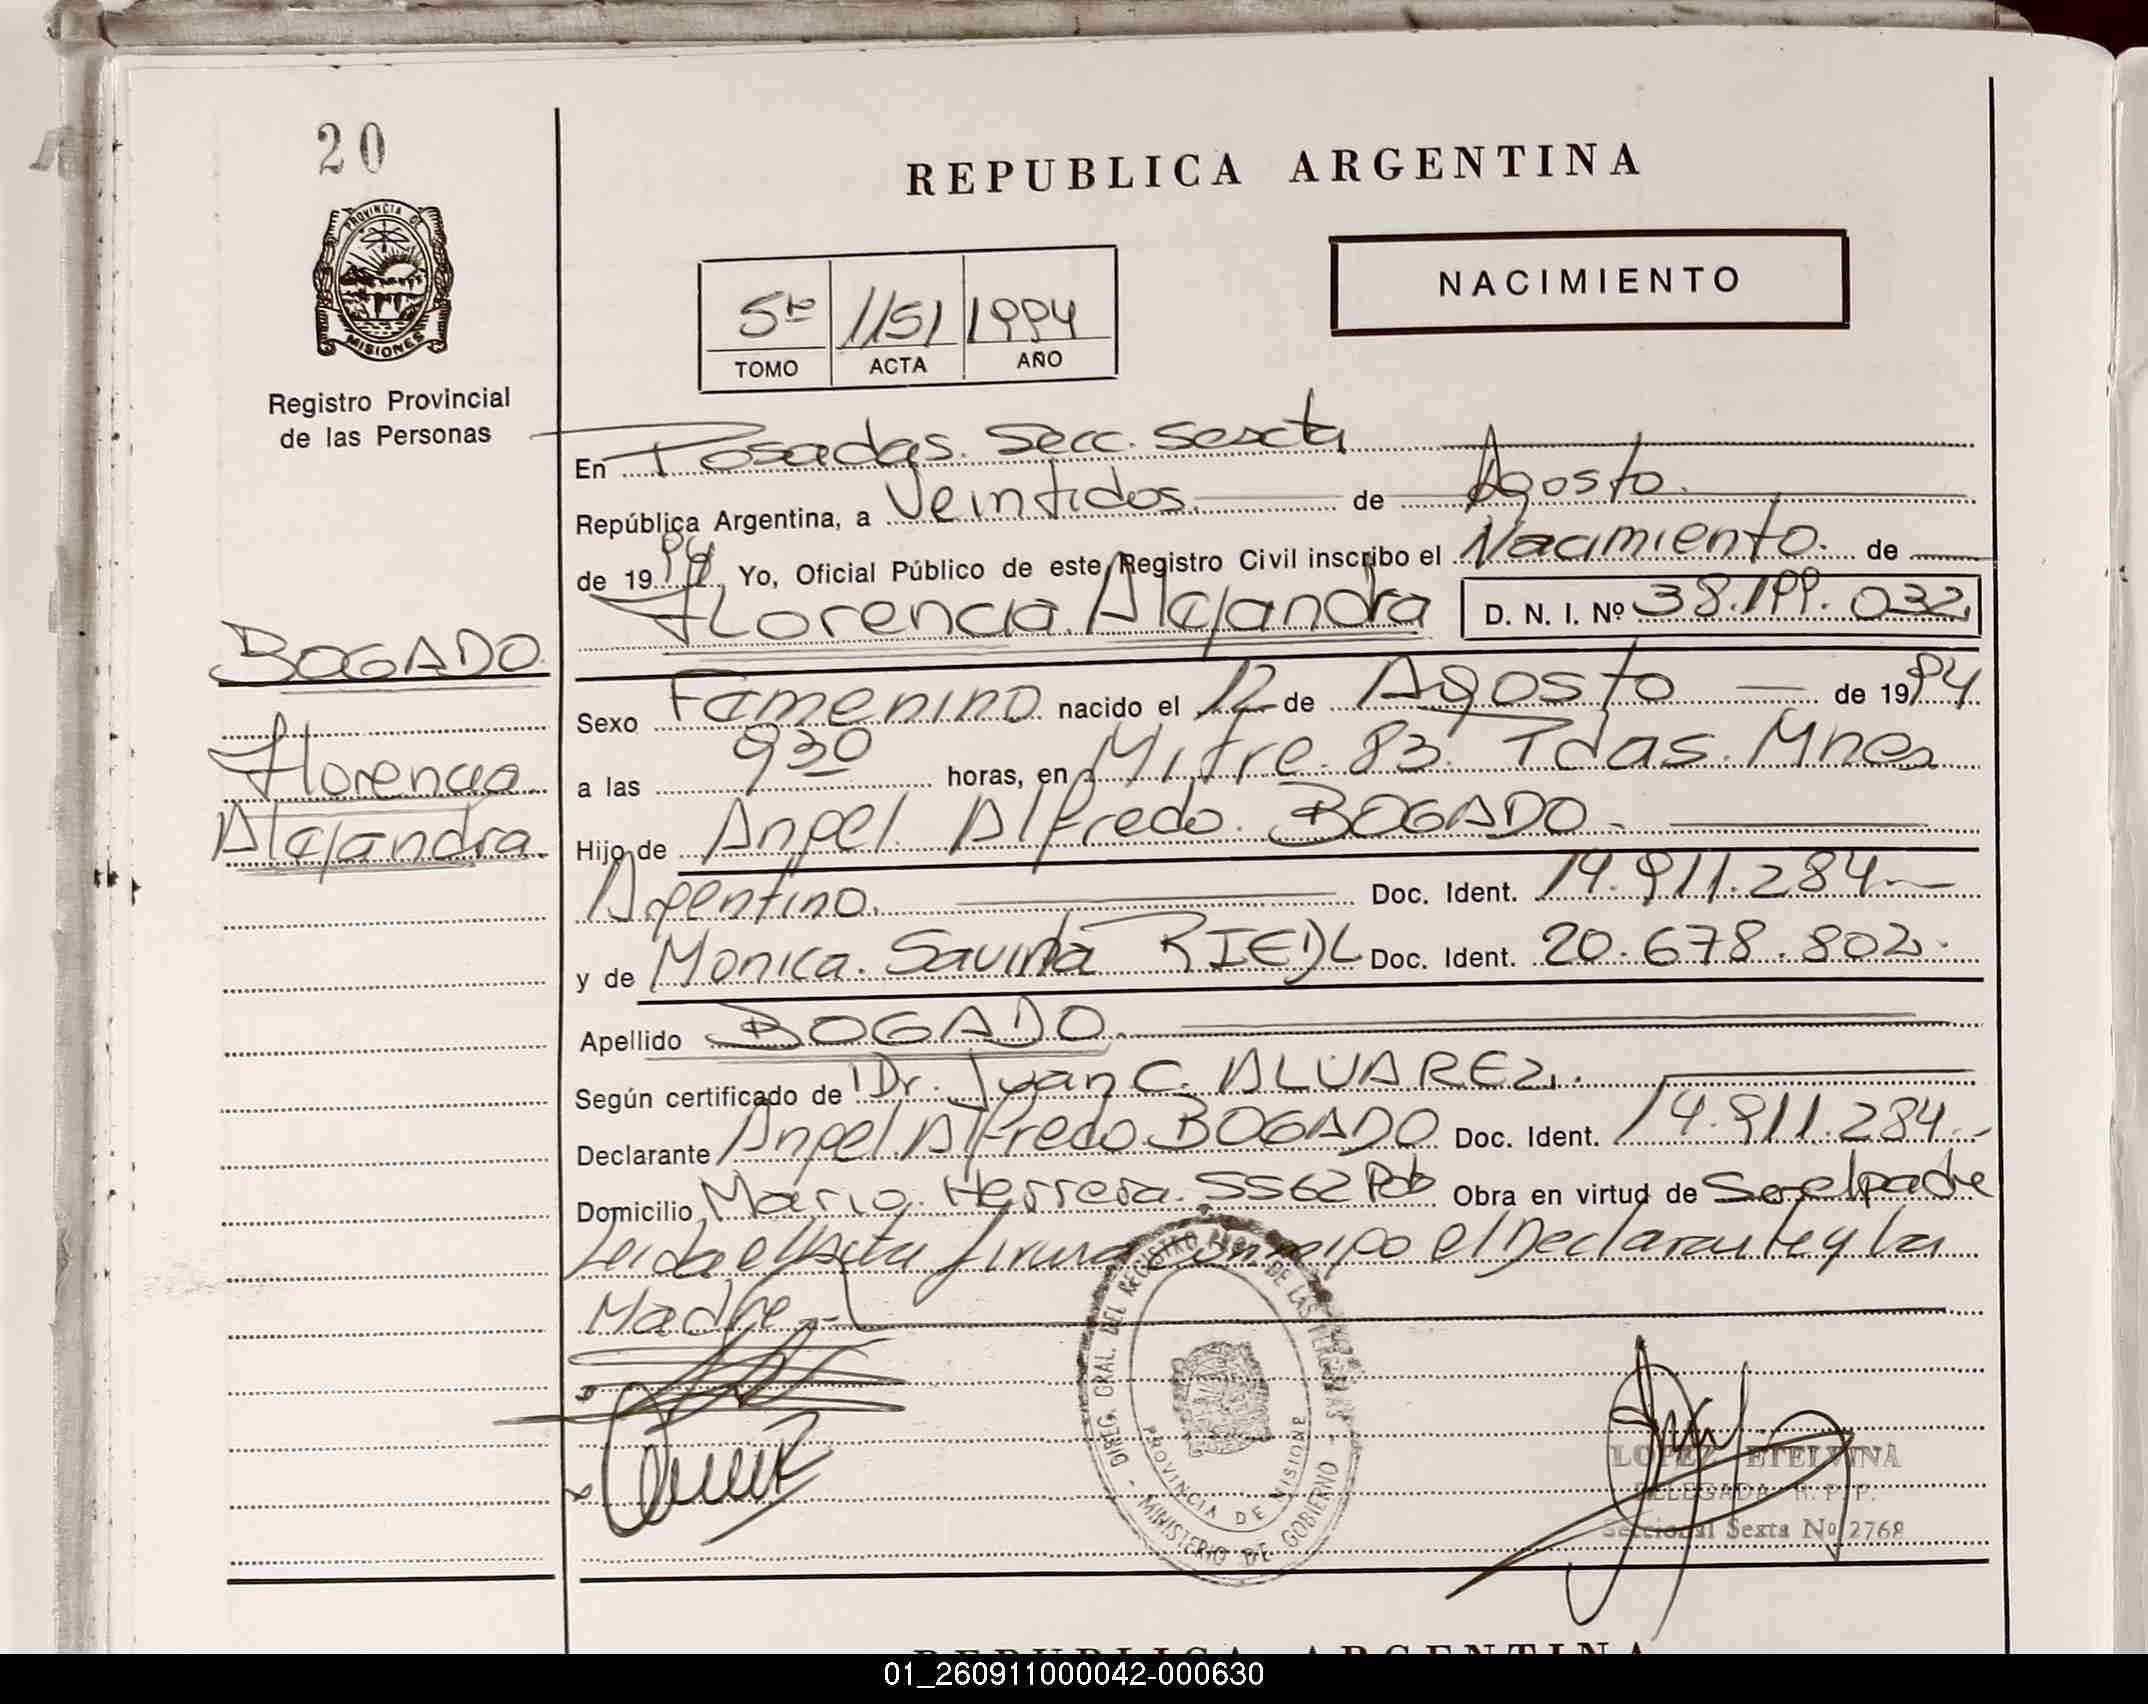 20
PROVINCIA DE
MISIONES
Registro Provincial
de las Personas
BOGADO
Florencia
Alejandra
REPUBLICA ARGENTINA
NACIMIENTO
5to 1151 1994
TOMO ACTA AÑO
En Posadas. Secc. Sexta
República Argentina, a Veintidos. de Agosto.
de 1994 Yo, Oficial Público de este Registro Civil inscribo el Nacimiento. de
Florencia. Alejandra D. N. I. Nº 38.199.032
Sexo Femenino nacido el 12 de Agosto de 1994
a las 930 horas, en Mitre. 83. Pdas. Mnes
Hijo de Angel. Alfredo. BOGADO.
Argentino. Doc. Ident. 14.911.284
y de Monica. Savina RIEDL Doc. Ident. 20.678.802.
Apellido BOGADO.
Según certificado de Dr. Juan C. ALVAREZ.
Declarante Angel Alfredo BOGADO Doc. Ident. 14.911.284.-
Domicilio Mario. Herrera. 5562 Pdas Obra en virtud de Ser el padre
Leida el Acta firma conmigo el Declarante y la
Madre.-
DIREG. GRAL. DEL REGISTRO PROV. DE LAS PERSONAS
PROVINCIA DE MISIONES
MINISTERIO DE GOBIERNO
LOPEZ ETELVINA
DELEGADA R. P. P.
Seccional Sexta Nº 2768
REPUBLICA ARGENTINA
01_260911000042-000630